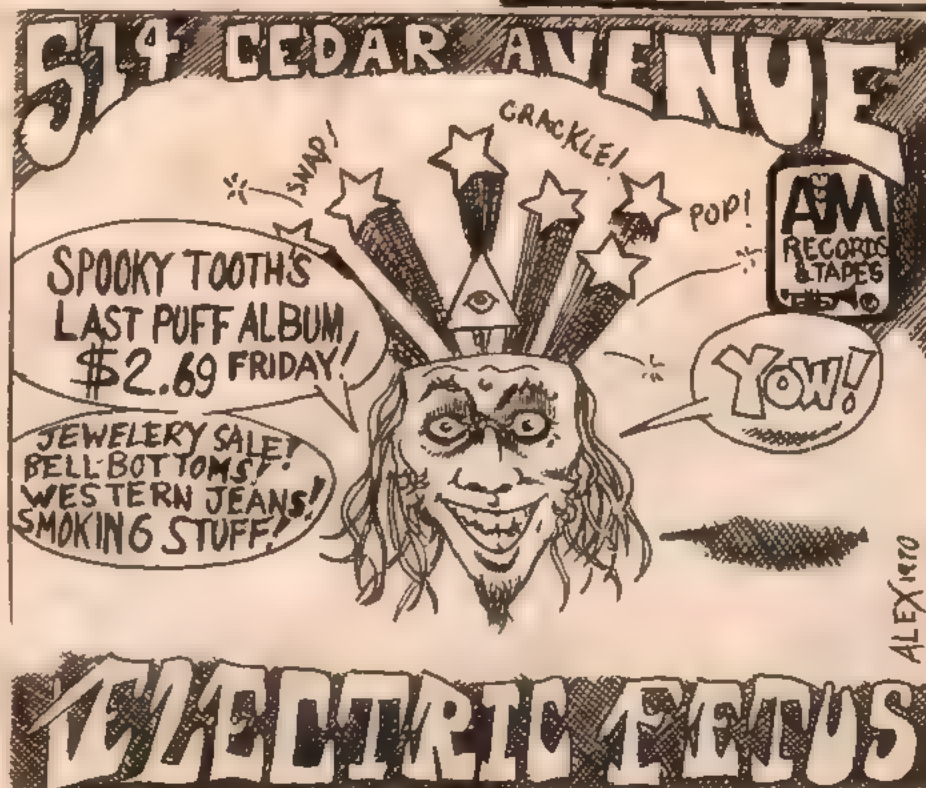 514 CEDAR AVENUE
SNAP!
CRACKLE!
POP!
A&M
RECORDS
& TAPES
SPOOKY TOOTH'S
LAST PUFF ALBUM
$2.69 FRIDAY!
YOW!
JEWELERY SALE!
BELL-BOTTOMS!
WESTERN JEANS!
SMOKING STUFF!
ALEX 1970
ELECTRIC FETUS